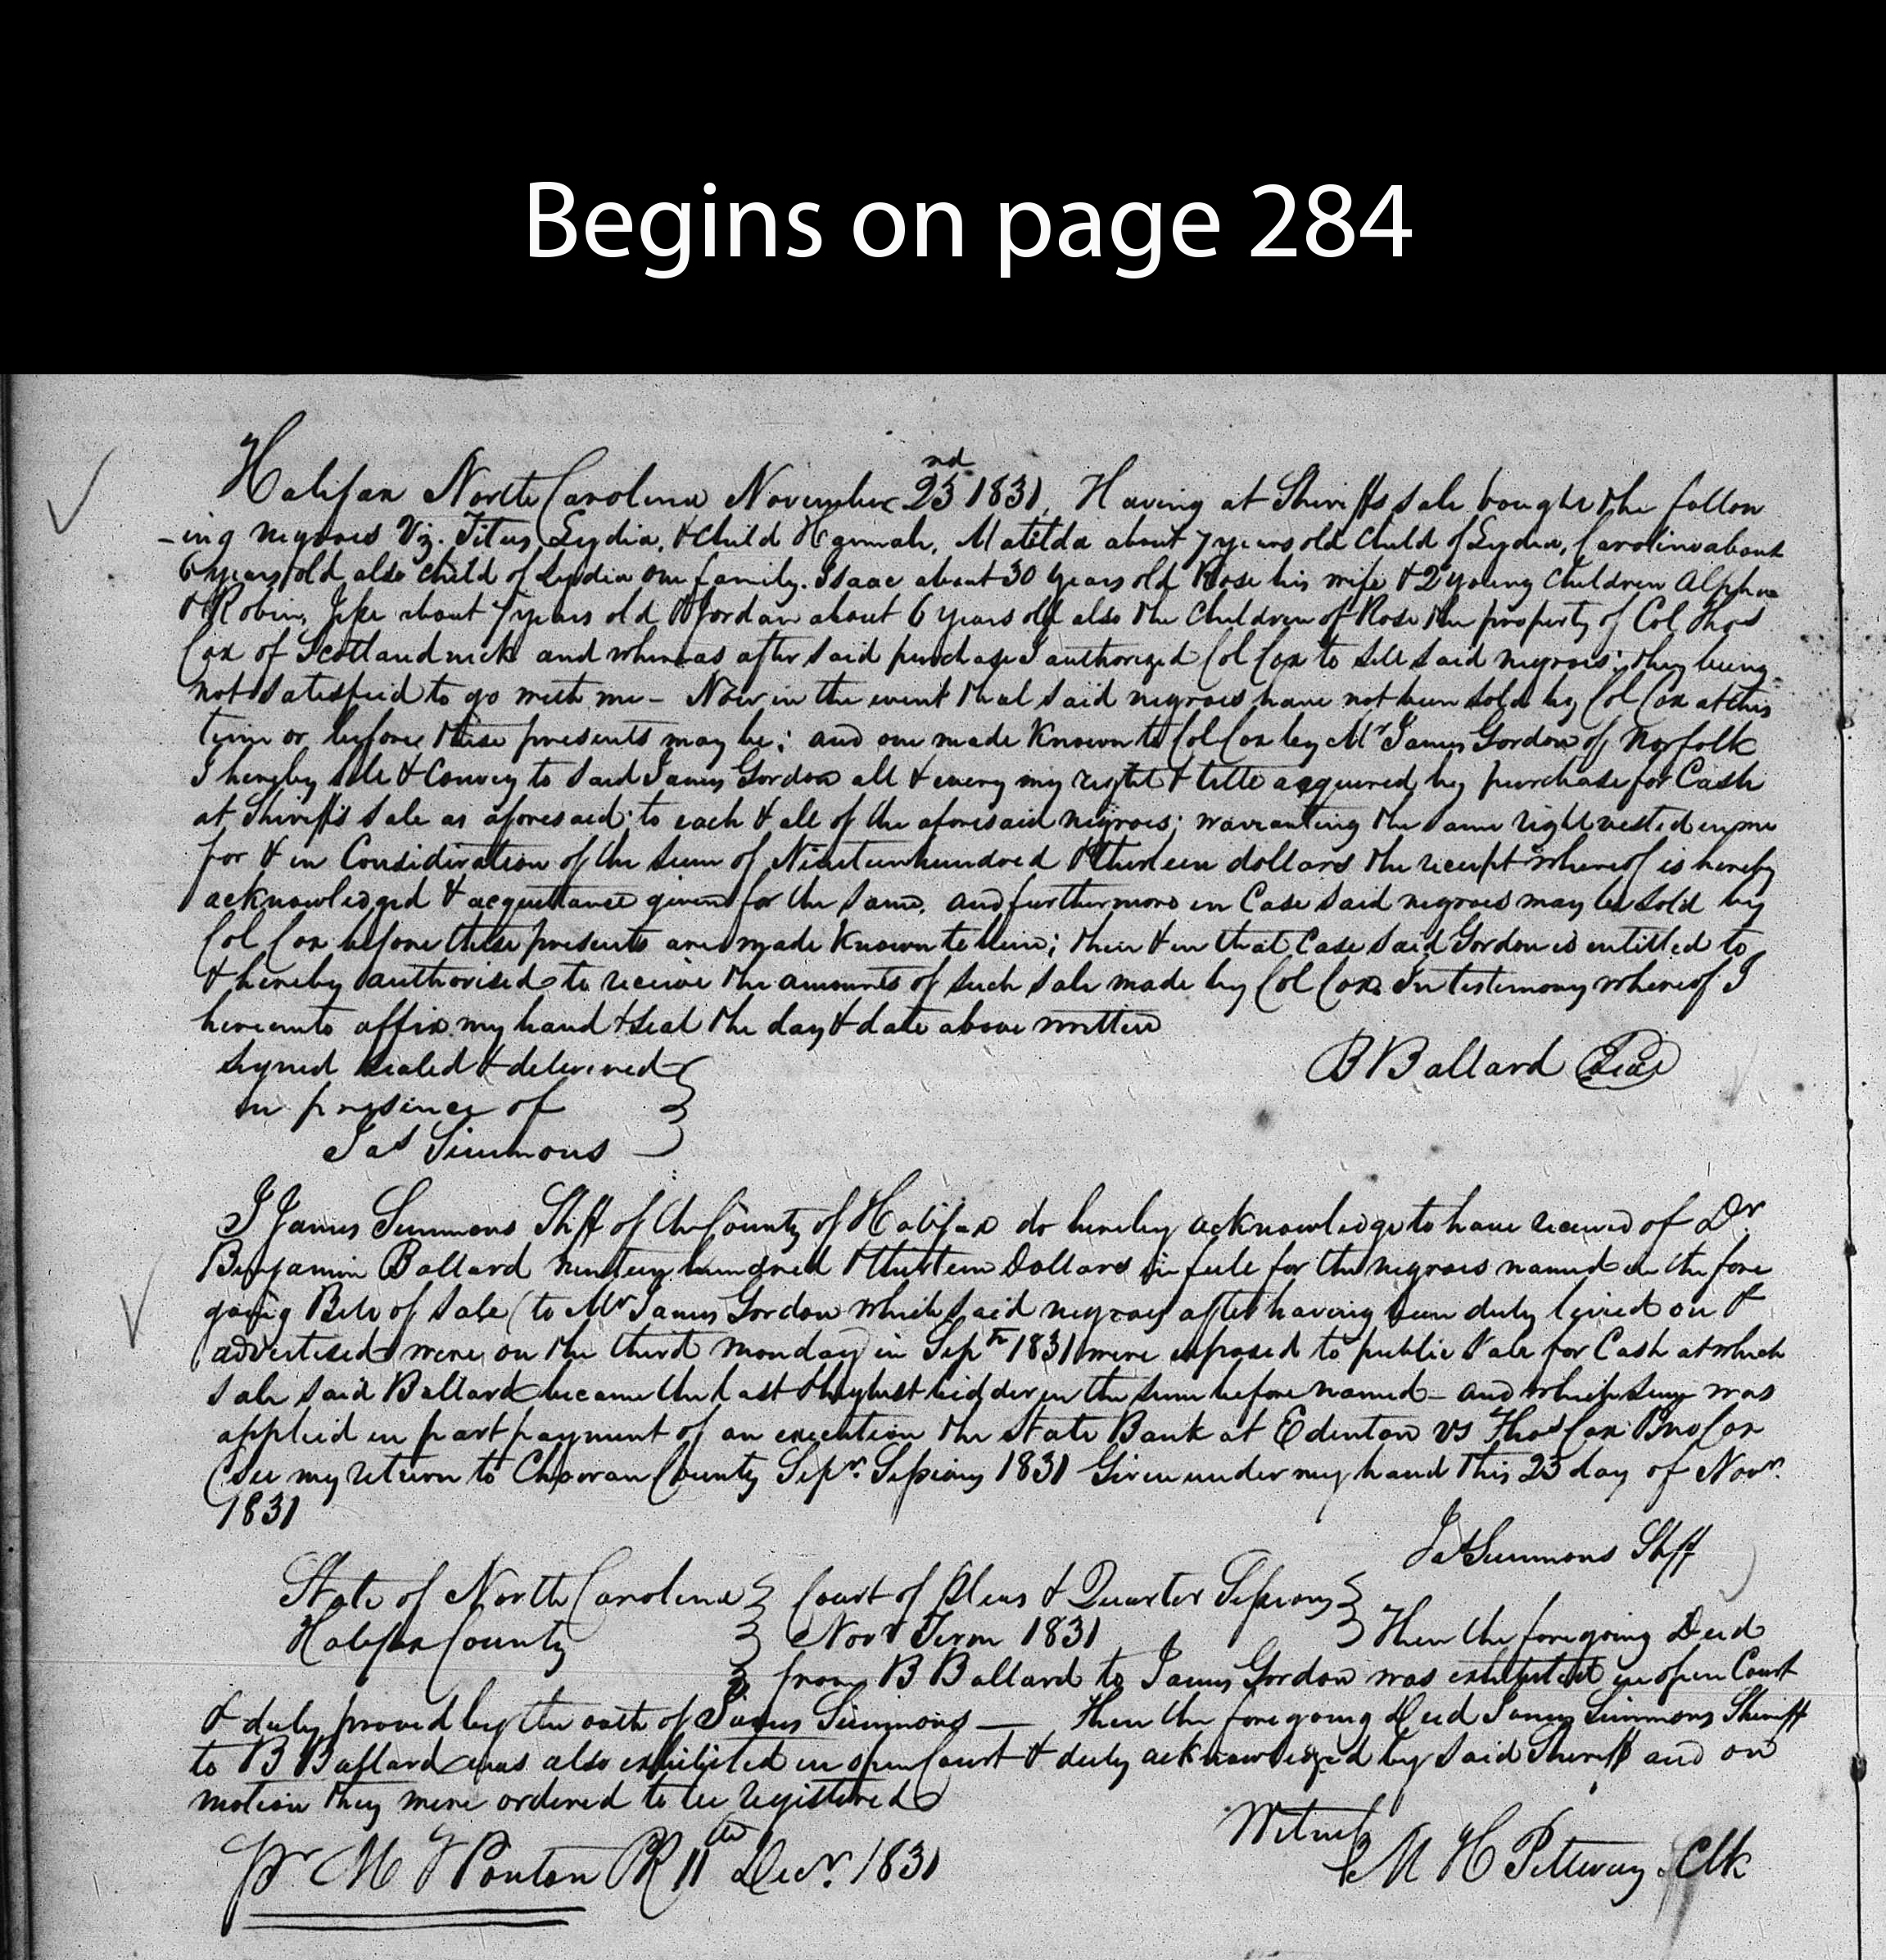 Begins on page 284
Halifax North Carolina November 23nd 1831. Having at Sheriffs sale bought the follow
-ing negroes Viz. Titus, Lydia, & child Hannah, Matilda about 7 years old child of Lydia, Caroline about
6 years old also child of Lydia one family. Isaac about 30 years old Rose his wife & 2 young children
& Robin, about 7 years old & Jordan about 6 years old also the children of Rose the property of Col Thos
Cox of Scotlandneck and whereas after said purchase I authorized Col Cox to sell said negroes; they being
not satisfied to go with me - Now in the event that said negroes have not been sold by Col Cox at this
time or before these presents may be; and are made known to Col Cox by Mr James Gordon of Norfolk
I hereby sell & convey to said James Gordon all & every my right & title acquired by purchase for Cash
at Sheriff's sale as aforesaid; to each & all of the aforesaid negroes; warranting the same right vested in me
for & in Consideration of the sum of Nineteen hundred & thirteen dollars the receipt whereof is hereby
acknowledged & acquittance given for the same. and furthermore in Case said negroes may be sold by
Col Cox before these presents are made known to him; then & in that Case said Gordon is entitled to
& hereby authorised to receive the amounts of such sale made by Col Cox. In testimony whereof I
hereunto affix my hand & seal the day & date above written
Signed sealed & delivered
B Ballard Seal
in presence of
Jas Simmons
I James Simmons Shff of the County of Halifax do hereby acknowledge to have received of Dr
Benjamin Ballard nineteen hundred & thirteen Dollars in full for the negroes named in the fore
going Bill of sale (to Mr James Gordon which said negroes after having been duly levied on &
advertised were on the third monday in Sepr 1831 were exposed to public sale for Cash at which
sale said Ballard became the last & highest bidder in the sum before named - and which sum was
applied in part payment of an execution the State Bank at Edenton vs Thos Cox Cox
(see my return to Chowan County Sepr. Sessions 1831 Given under my hand this 23 day of Novr.
1831
Jas Simmons Shff
State of North Carolina Court of Pleas & Quarter Sessions
Halifax County Novr Term 1831 Then the foregoing Deed
from B Ballard to James Gordon was exhibited in open Court
& duly proved by the oath of James Simmons — Then the foregoing Deed James Simmons Sheriff
to B Ballard was also exhibited in open Court & duly acknowledged by said Sheriff and on
motion they were ordered to be registered
Witness
pr M T Ponton PR 11th Decr. 1831
M H Pettway Clk